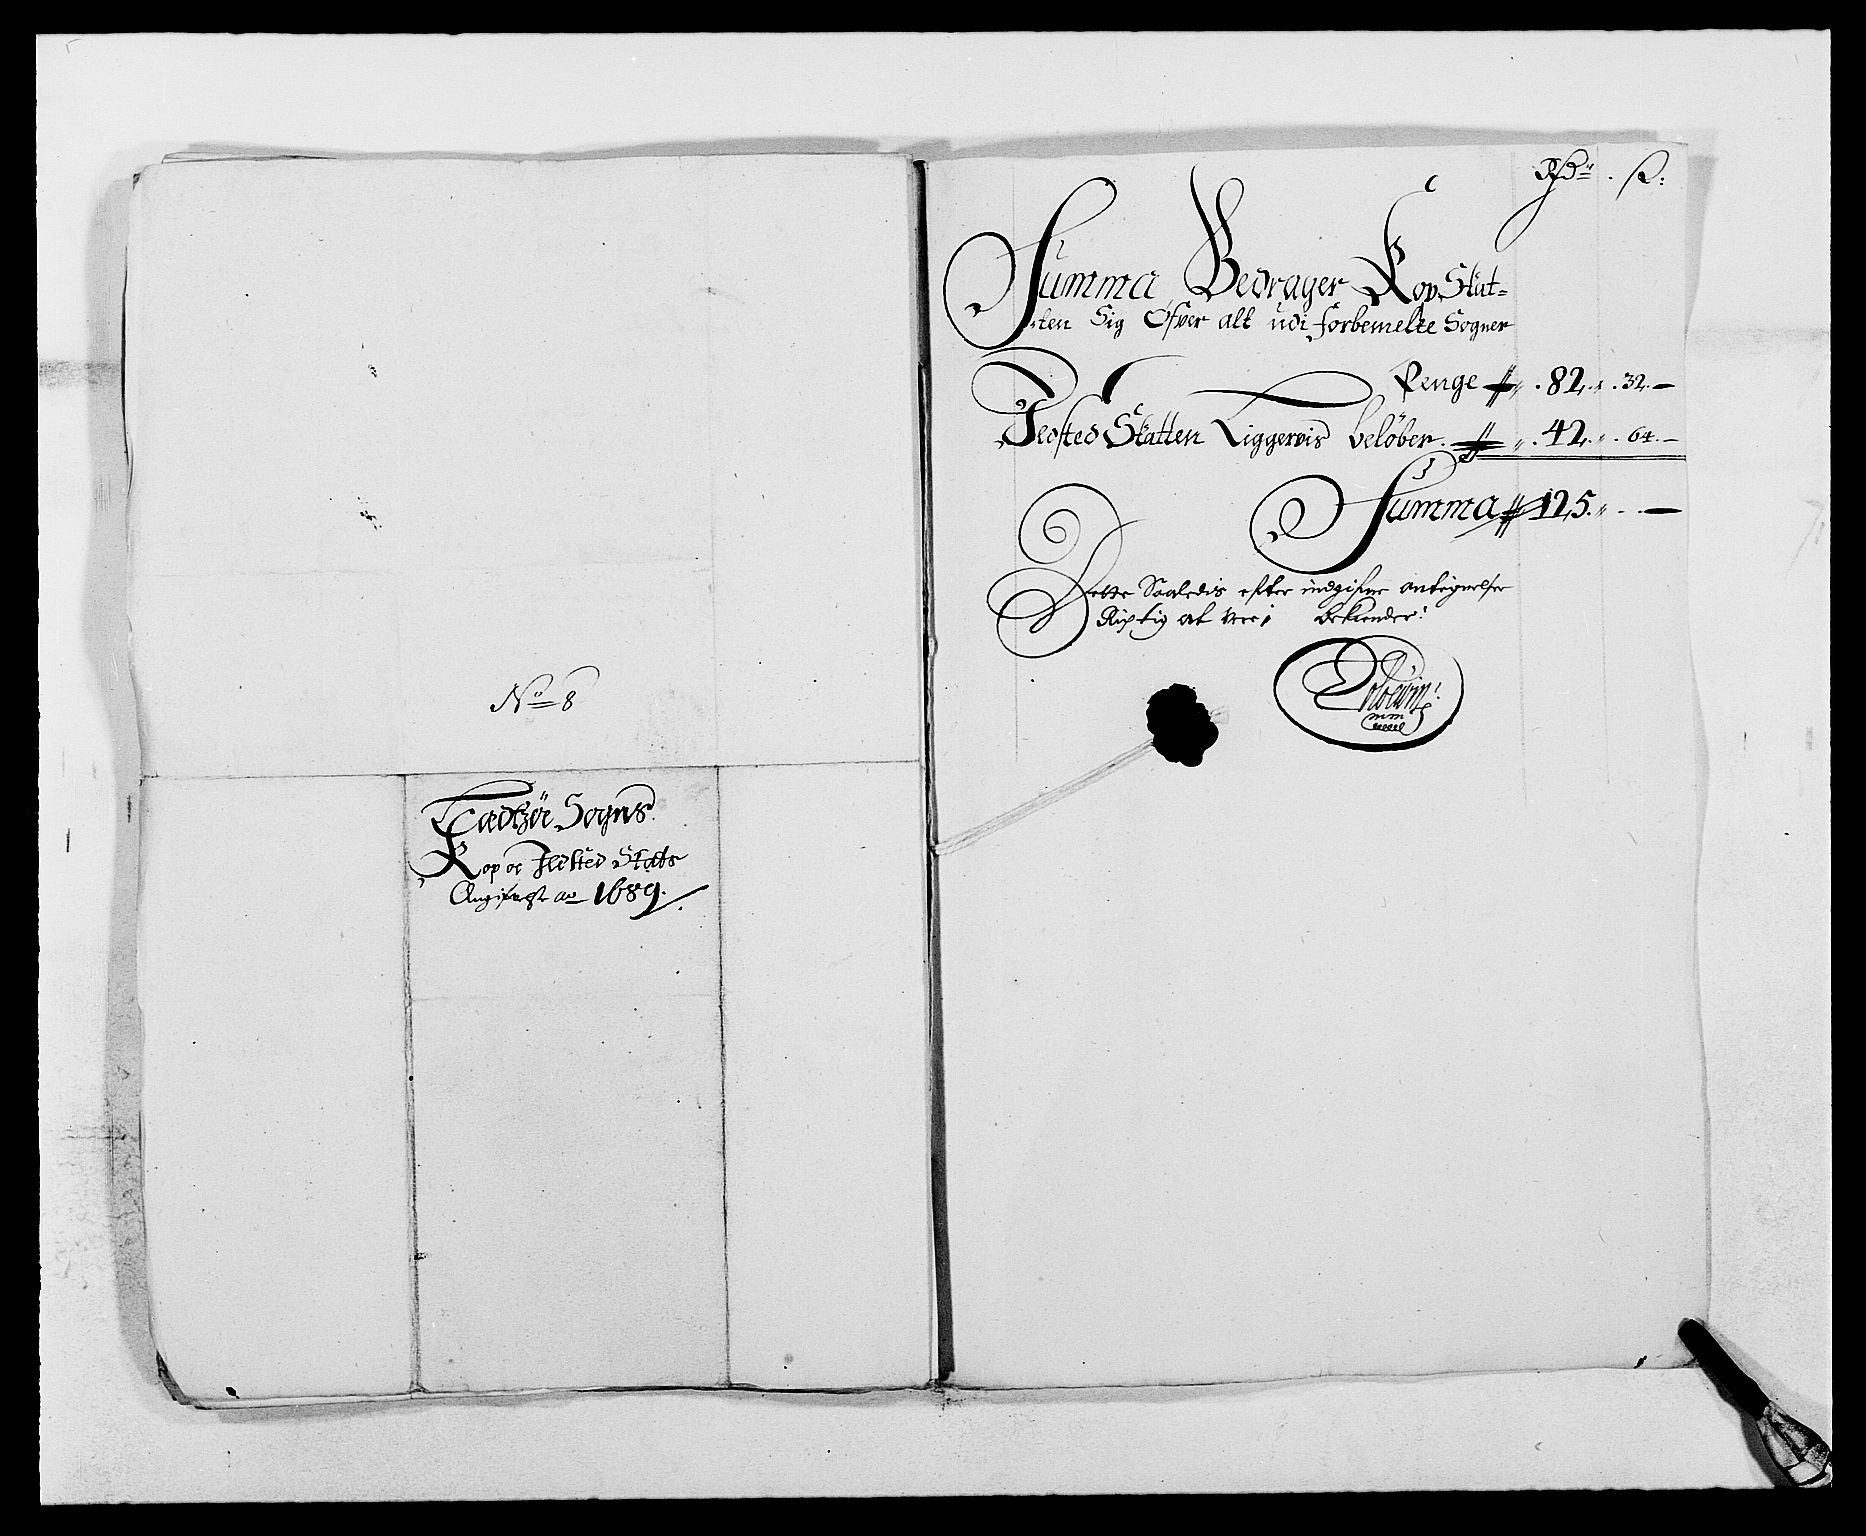 No 8
Sogns
Kop oc Ildsted Skats
Angifvelse ao 1689.
Rdr. ß:
Summa Bedrager Kop Skat=
ten Sig Ofver alt udi forbemelte Sogner
Penge # 82. . 32. —
Ildsted Skatten Liggervis beløber. # 42. . 64. —
Summa # 125. . . —
Dette Saaledis efter indgifne antegnelser
Rigtig at vere, bekiender: